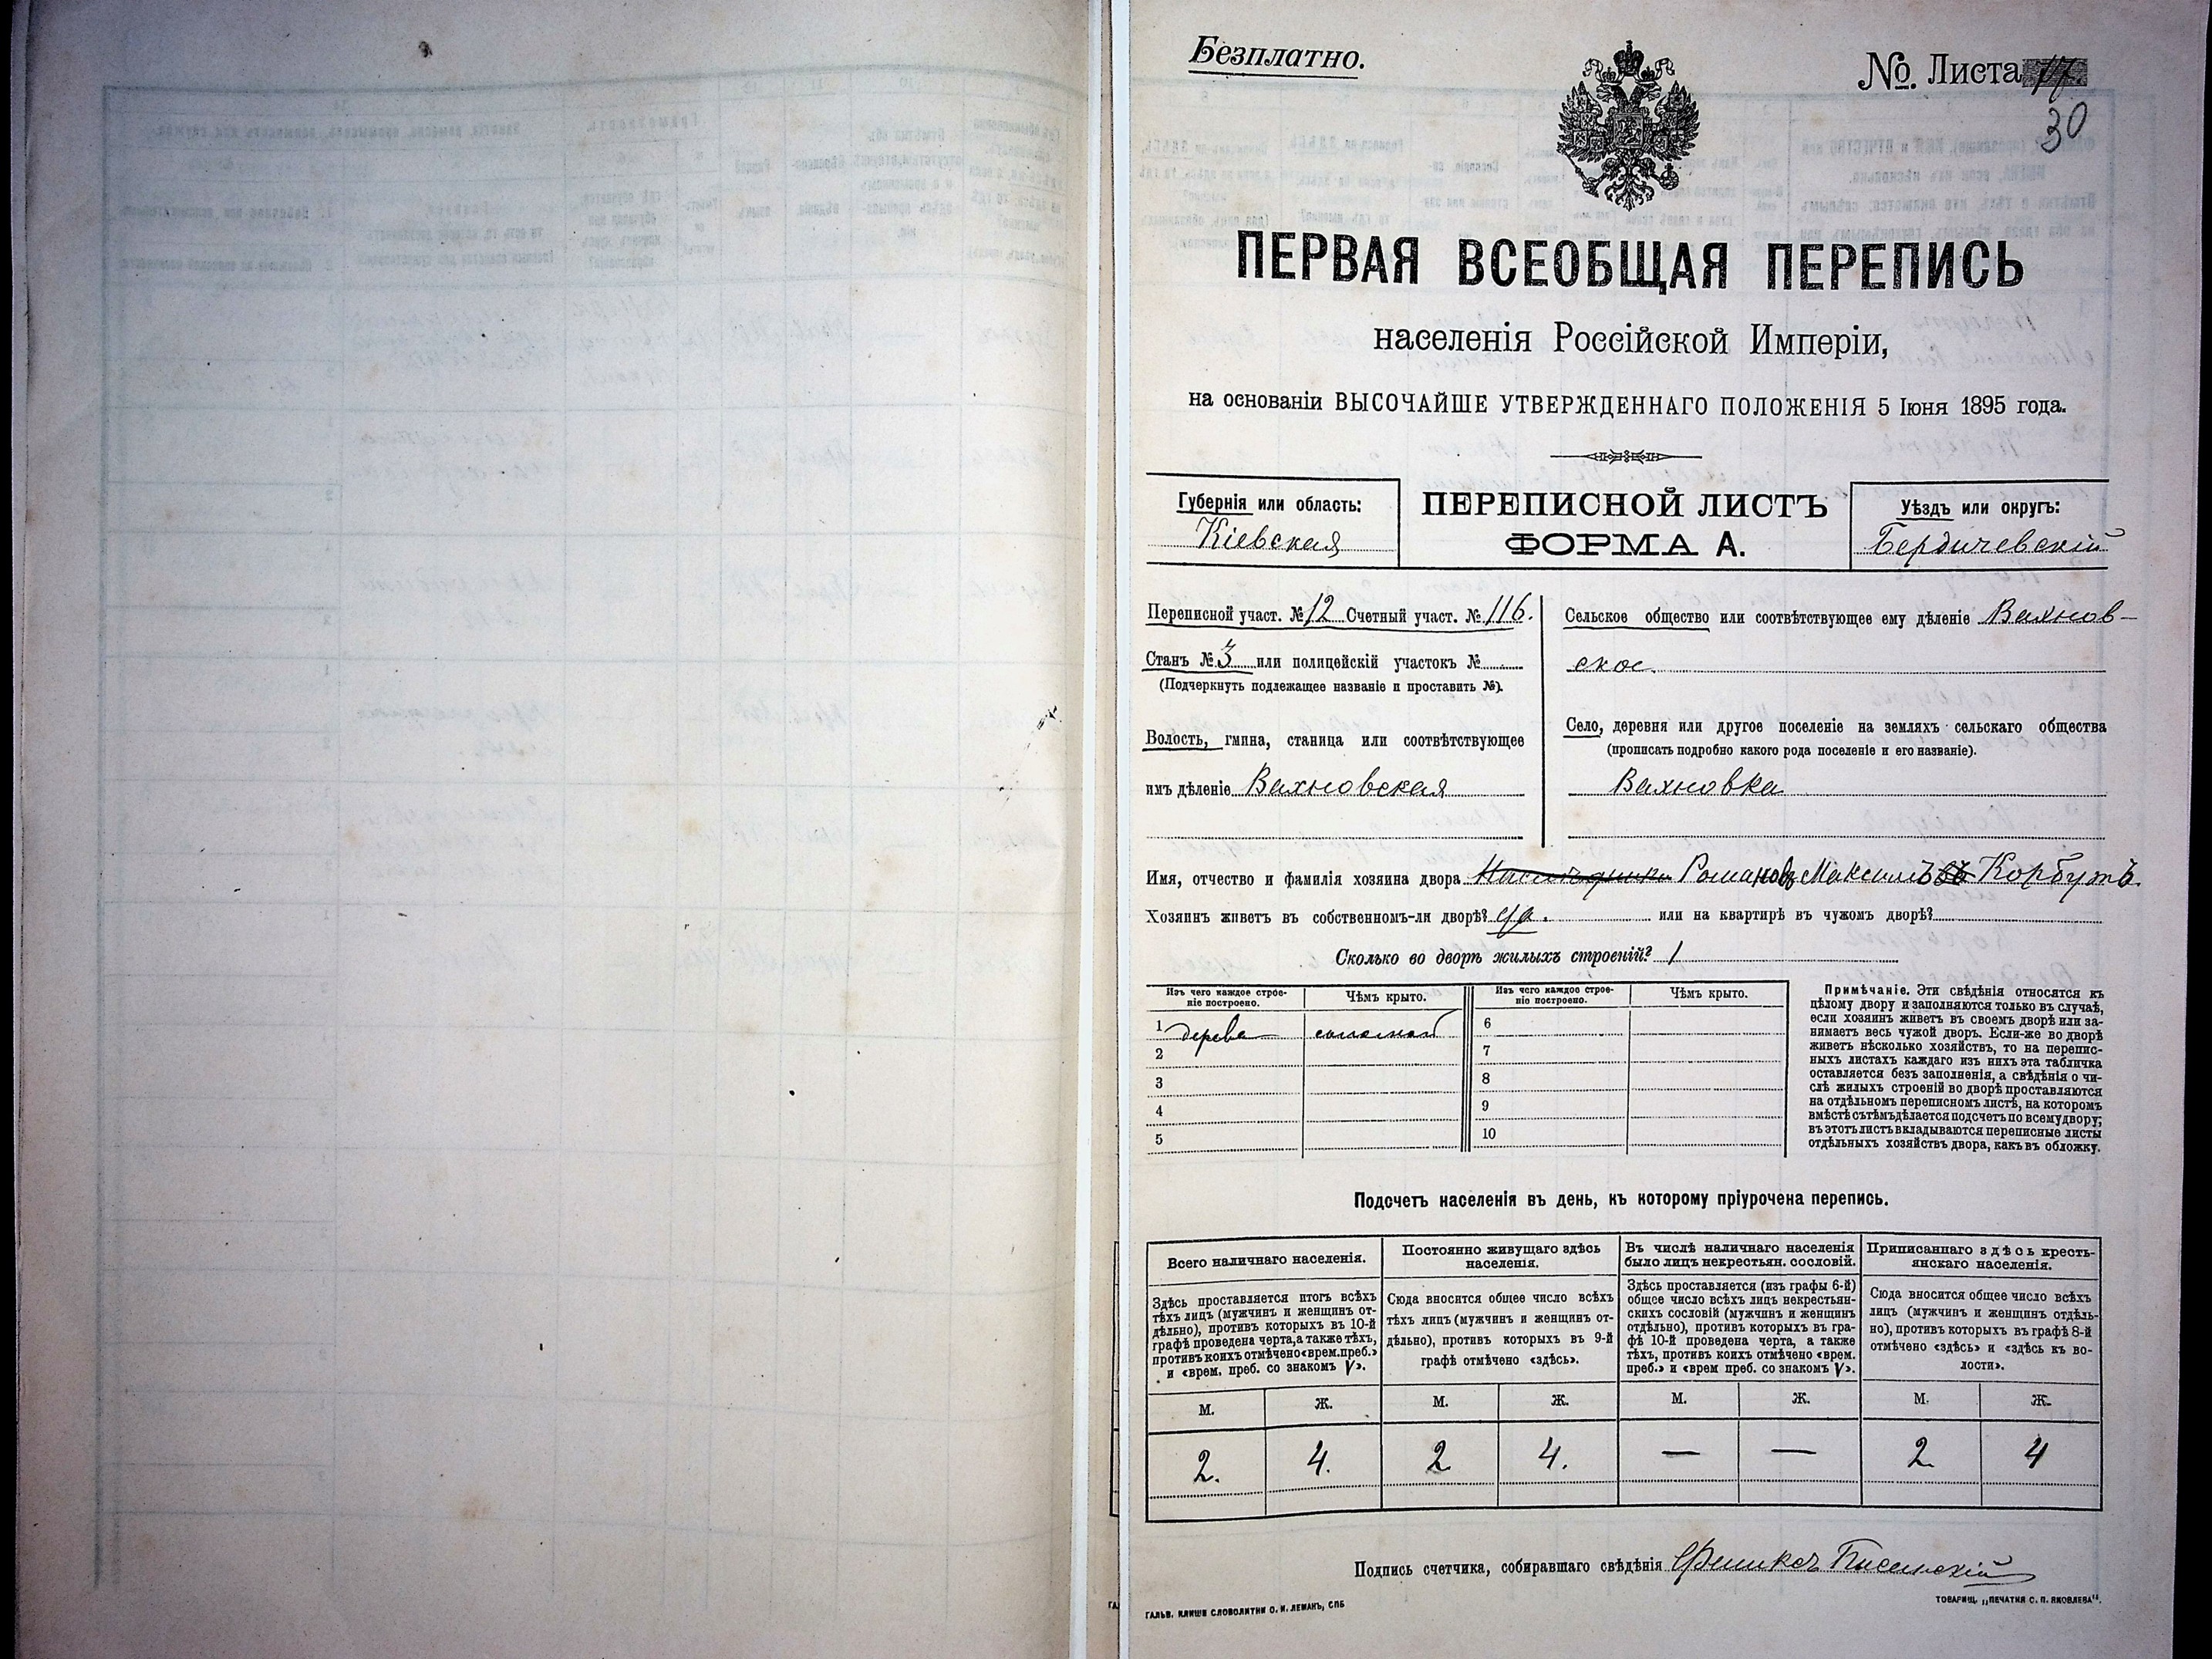 Безплатно.
№ Листа 17.
30
ПЕРВАЯ ВСЕОБЩАЯ ПЕРЕПИСЬ
населенія Россійской Имперіи,
на основаніи ВЫСОЧАЙШЕ УТВЕРЖДЕННАГО ПОЛОЖЕНІЯ 5 Іюня 1895 года.
Губернія или область:
Кіевская
ПЕРЕПИСНОЙ ЛИСТЪ
ФОРМА А.
Уѣздъ или округъ:
Бердичевскій
Переписной участ. № 12 Счетный участ. № 116.
Станъ № 3 или полицейскій участокъ №
(Подчеркнуть подлежащее названіе и проставить №).
Волость, гмина, станица или соотвѣтствующее
имъ дѣленіе Вахновская
Сельское общество или соотвѣтствующее ему дѣленіе Вахнов-
ское
Село, деревня или другое поселеніе на земляхъ сельскаго общества
(прописать подробно какого рода поселеніе и его названіе).
Вахновка
Имя, отчество и фамилія хозяина двора Романовъ Максимъ Корбутъ.
Хозяинъ живетъ въ собственномъ-ли дворѣ? да. или на квартирѣ въ чужомъ дворѣ?
Сколько во дворѣ жилыхъ строеній? 1
Изъ чего каждое строе-
ніе построено.
Чѣмъ крыто.
Изъ чего каждое строе-
ніе построено.
Чѣмъ крыто.
1 дерева соломой
2
3
4
5
6
7
8
9
10
Примѣчаніе. Эти свѣдѣнія относятся къ
цѣлому двору и заполняются только въ случаѣ,
если хозяинъ живетъ въ своемъ дворѣ или за-
нимаетъ весь чужой дворъ. Если-же во дворѣ
живетъ нѣсколько хозяйствъ, то на перепис-
ныхъ листахъ каждаго изъ нихъ эта табличка
оставляется безъ заполненія, а свѣдѣнія о чи-
слѣ жилыхъ строеній во дворѣ проставляются
на отдѣльномъ переписномъ листѣ, на которомъ
вмѣстѣ съ тѣмъ дѣлается подсчетъ по всему двору;
въ этотъ листъ вкладываются переписные листы
отдѣльныхъ хозяйствъ двора, какъ въ обложку.
Подсчетъ населенія въ день, къ которому пріурочена перепись.
Всего наличнаго населенія.
Здѣсь проставляется итогъ всѣхъ
тѣхъ лицъ (мужчинъ и женщинъ от-
дѣльно), противъ которыхъ въ 10-й
графѣ проведена черта, а также тѣхъ,
противъ коихъ отмѣчено «врем. преб.»
и «врем. преб. со знакомъ V».
Постоянно живущаго здѣсь
населенія.
Сюда вносится общее число всѣхъ
тѣхъ лицъ (мужчинъ и женщинъ от-
дѣльно), противъ которыхъ въ 9-й
графѣ отмѣчено «здѣсь».
Въ числѣ наличнаго населенія
было лицъ некрестьян. сословій.
Здѣсь проставляется (изъ графы 6-й)
общее число всѣхъ лицъ некрестьян-
скихъ сословій (мужчинъ и женщинъ
отдѣльно), противъ которыхъ въ гра-
фѣ 10-й проведена черта, а также
тѣхъ, противъ коихъ отмѣчено «врем.
преб.» и «врем преб. со знакомъ V».
Приписаннаго здѣсь кресть-
янскаго населенія.
Сюда вносится общее число всѣхъ
лицъ (мужчинъ и женщинъ отдѣль-
но), противъ которыхъ въ графѣ 8-й
отмѣчено «здѣсь» и «здѣсь къ во-
лости».
М. Ж. М. Ж. М. Ж. М. Ж.
2. 4. 2 4. — — 2 4
Подпись счетчика, собиравшаго свѣдѣнія Феликсъ
ГАЛЬВ. КЛИШЕ СЛОВОЛИТНИ О. И. ЛЕМАНЪ, СПБ
ТОВАРИЩ. „ПЕЧАТНЯ С. П. ЯКОВЛЕВА".